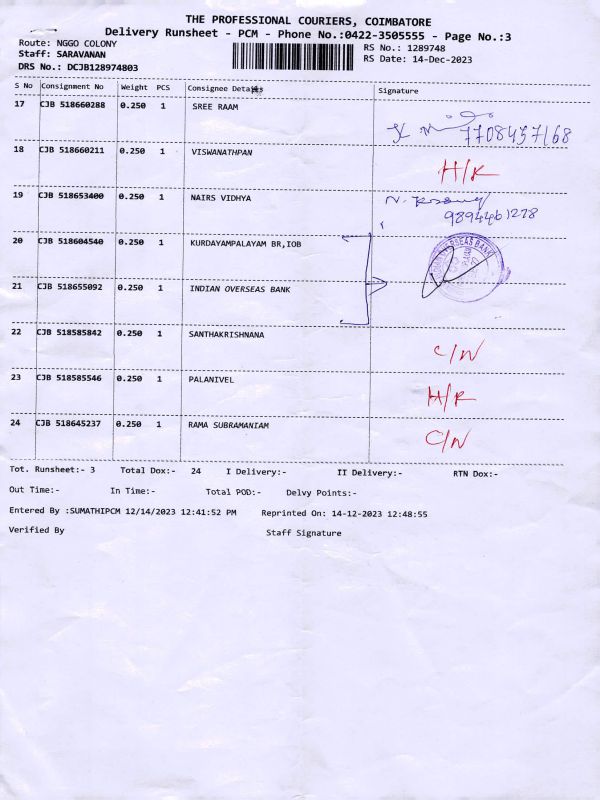 THE PROFESSIONAL COURIERS, COIMBATORE
Delivery Runsheet - PCM - Phone No.:0422-3505555 - Page No.:3
Route: NGGO COLONY
Staff: SARAVANAN
DRS No.: DCJB128974803
RS No.: 1289748
RS Date: 14-Dec-2023
S No Consignment No Weight PCS Consignee Details Signature
17 CJB 518660288 0.250 1 SREE RAAM
7708437168
18 CJB 518660211 0.250 1 VISWANATHPAN H/K
19 CJB 518653400 0.250 1 NAIRS VIDHYA
9894461278
20 CJB 518604540 0.250 1 KURDAYAMPALAYAM BR,IOB
21 CJB 518655092 0.250 1 INDIAN OVERSEAS BANK
22 CJB 518585842 0.250 1 SANTHAKRISHNANA C/N
23 CJB 518585546 0.250 1 PALANIVEL H/K
24 CJB 518645237 0.250 1 RAMA SUBRAMANIAM C/N
Tot. Runsheet:- 3 Total Dox:- 24 I Delivery:- II Delivery:- RTN Dox:-
Out Time:- In Time:- Total POD:- Delvy Points:-
Entered By :SUMATHIPCM 12/14/2023 12:41:52 PM Reprinted On: 14-12-2023 12:48:55
Verified By Staff Signature